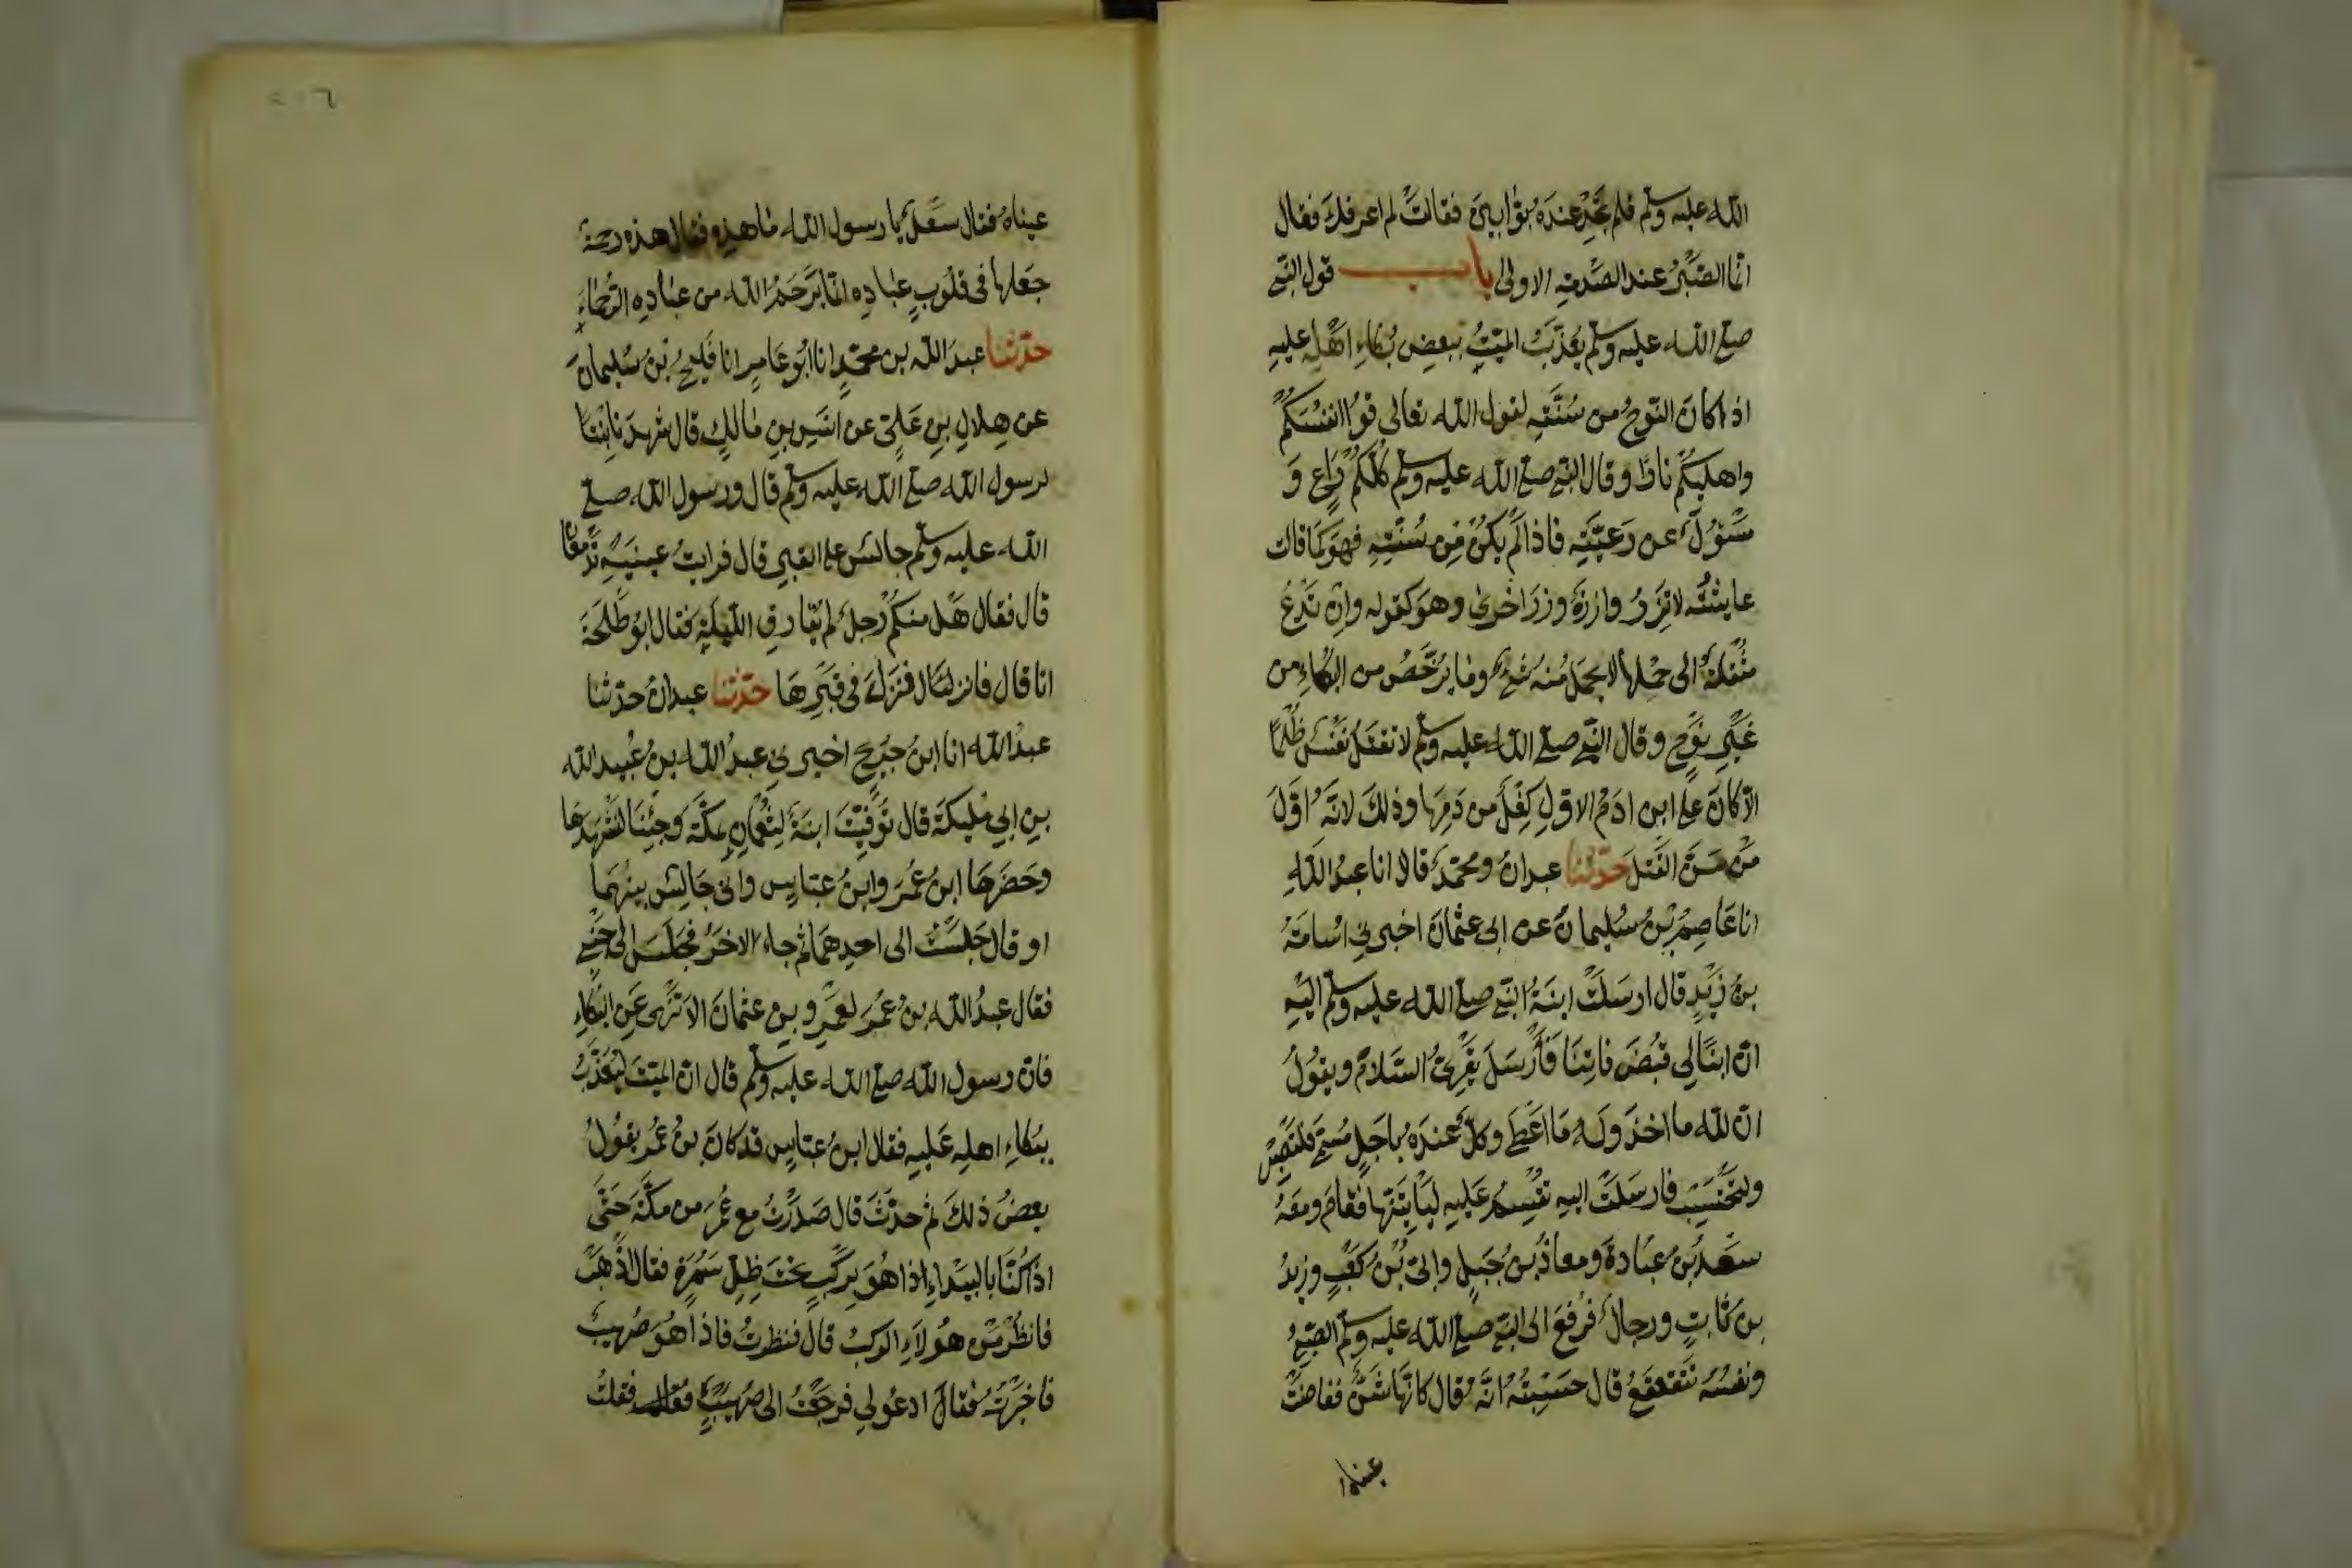 الله عليه وسلم فلم تجد عنده بوابين فقالت لم اعرفك فقال
انما الصبر عند الصدمة الاولى باب قول النبى
صلى الله عليه وسلم يعذب الميت ببعض بكاء اهله عليه
اذا كان النوح من سنته لقول الله تعالى قوا انفسكم
واهليكم نارا وقال النبى صلى الله عليه وسلم كلكم راع و
مسؤل عن رعيته فاذا لم يكن من سنته فهو كما قالت
عايشة لا تزر وازرة وزر اخرى وهو كقوله وان تدع
مثقلة الى حملها لا يحمل منه شئ وما يرخص من البكاء من
غير نوح وقال النبى صلى الله عليه وسلم لا تقتل نفس ظلما
الا كان على ابن ادم الاول كفل من دمها وذلك لانه اول
من سن القتل حدثنا عبدان ومحمد قالا انا عبد الله
انا عاصم بن سليمان عن ابى عثمان اخبرنى اسامة
بن زيد قال ارسلت ابنة النبى صلى الله عليه وسلم اليه
ان ابنا لى قبض فاتنا فارسل يقرئ السلام ويقول
ان لله ما اخذ وله ما اعطى وكل عنده باجل مسمى فلتصبر
ولتحتسب فارسلت اليه تقسم عليه لياتينها فقام ومعه
سعد بن عبادة ومعاذ بن جبل وابى بن كعب وزيد
بن ثابت ورجال فرفع الى النبى صلى الله عليه وسلم الصبى
ونفسه تتقعقع قال حسبته انه قال كانها شن ففاضت
عيناه
٢٠٦
عيناه فقال سعد يا رسول الله ما هذه فقال هذه رحمة
جعلها فى قلوب عباده انما يرحم الله من عباده الرحماء
حدثنا عبد الله بن محمد انا ابو عامر انا فليح بن سليمان
عن هلال بن على عن انس بن مالك قال شهدنا بنتا
لرسول الله صلى الله عليه وسلم قال ورسول الله صلى
الله عليه وسلم جالس على القبر قال فرايت عينيه تدمعان
قال فقال هل منكم رجل لم يقارف الليلة فقال ابو طلحة
انا قال فانزل قال فنزل فى قبرها حدثنا عبدان حدثنا
عبد الله انا ابن جريج اخبرنى عبد الله بن عبيد الله
بن ابى مليكة قال توفيت ابنة لعثمان بمكة وجئنا لنشهدها
وحضرها ابن عمر وابن عباس وانى جالس بينهما
او قال جلست الى احدهما ثم جاء الاخر فجلس الى جنبى
فقال عبد الله بن عمر لعمرو بن عثمان الا تنهى عن البكاء
فان رسول الله صلى الله عليه وسلم قال ان الميت ليعذب
ببكاء اهله عليه فقال ابن عباس قد كان بن عمر يقول
بعض ذلك ثم حدث قال صدرت مع عمر من مكة حتى
اذا كنا بالبيداء اذا هو بركب تحت ظل سمرة فقال اذهب
فانظر من هولاء الركب قال فنظرت فاذا هو صهيب
فاخبرته فقال ادعو لى فرجعت الى صهيب فقلت